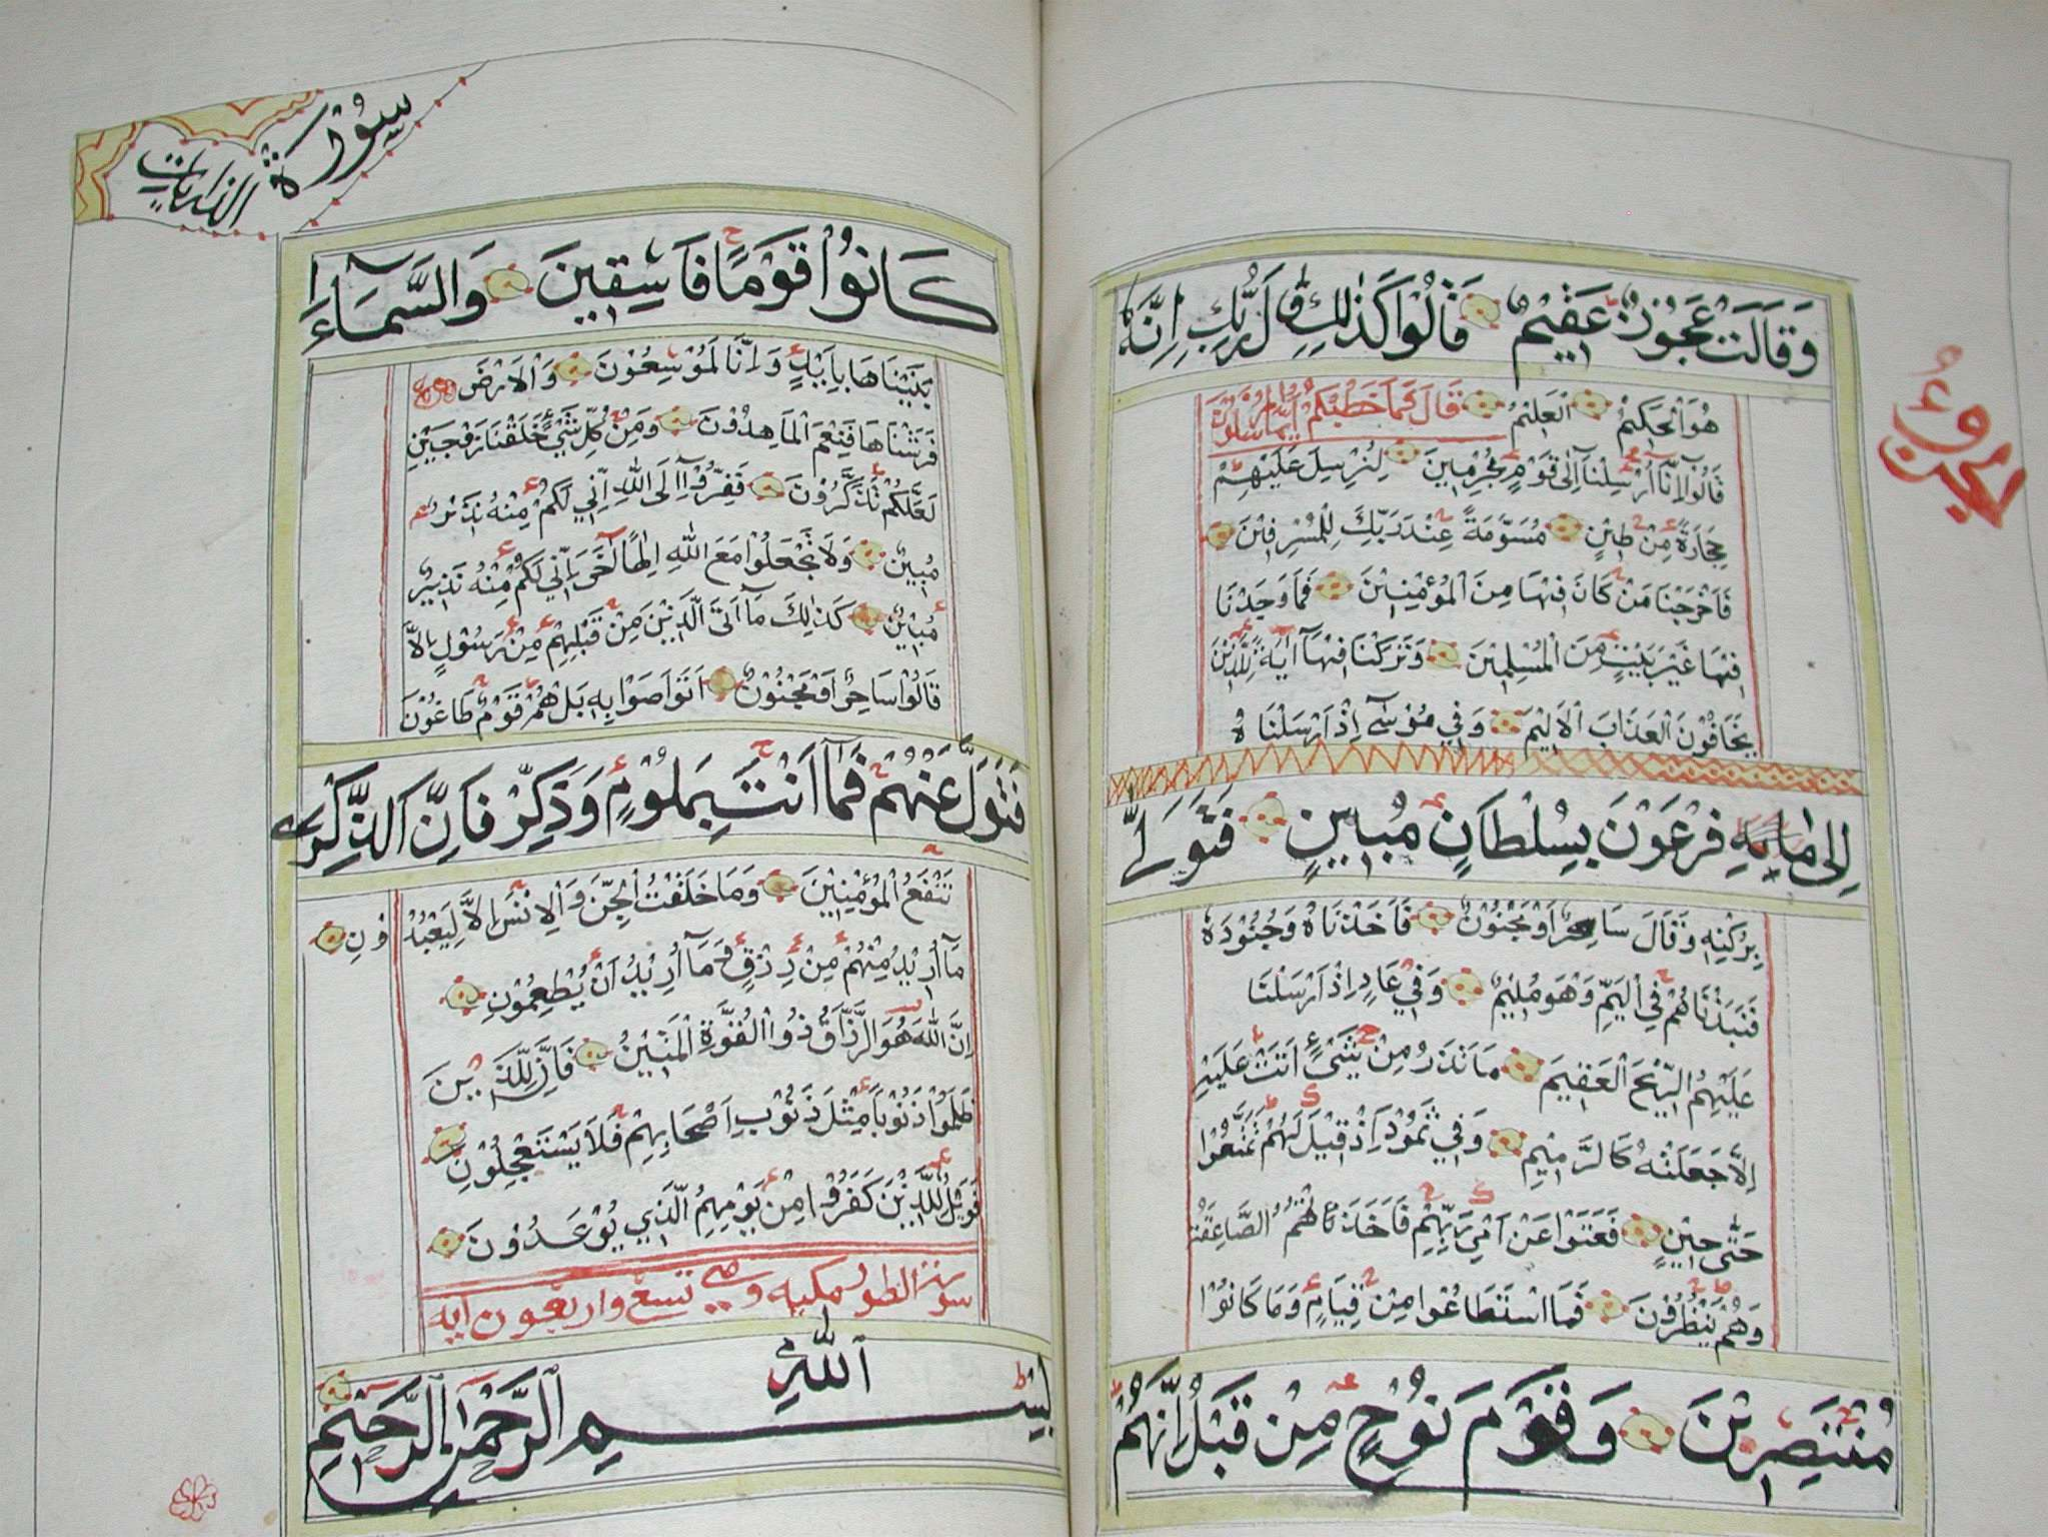 وَقَالَتْ عَجُوْزٌ عَقِيْمٌ قَالُوْا كَذٰلِكِ قَالَ رَبُّكِ اِنَّهٗ
هُوَ الْحَكِيْمُ الْعَلِيْمُ قَالَ فَمَا خَطْبُكُمْ اَيُّهَا الْمُرْسَلُوْنَ
قَالُوْا اِنَّا اُرْسِلْنَا اِلٰى قَوْمٍ مُجْرِمِيْنَ لِنُرْسِلَ عَلَيْهِمْ
حِجَارَةً مِنْ طِيْنٍ مُسَوَّمَةً عِنْدَ رَبِّكَ لِلْمُسْرِفِيْنَ
فَاَخْرَجْنَا مَنْ كَانَ فِيْهَا مِنَ الْمُؤْمِنِيْنَ فَمَا وَجَدْنَا
فِيْهَا غَيْرَ بَيْتٍ مِنَ الْمُسْلِمِيْنَ وَتَرَكْنَا فِيْهَا اٰيَةً لِلَّذِيْنَ
يَخَافُوْنَ الْعَذَابَ الْاَلِيْمَ وَفِيْ مُوْسٰى اِذْ اَرْسَلْنَاهُ
اِلٰى فِرْعَوْنَ بِسُلْطَانٍ مُبِيْنٍ فَتَوَلّٰى
بِرُكْنِهٖ وَقَالَ سَاحِرٌ اَوْ مَجْنُوْنٌ فَاَخَذْنَاهُ وَجُنُوْدَهٗ
فَنَبَذْنَاهُمْ فِي الْيَمِّ وَهُوَ مُلِيْمٌ وَفِيْ عَادٍ اِذْ اَرْسَلْنَا
عَلَيْهِمُ الرِّيْحَ الْعَقِيْمَ مَا تَذَرُ مِنْ شَيْءٍ اَتَتْ عَلَيْهِ
اِلَّا جَعَلَتْهُ كَالرَّمِيْمِ وَفِيْ ثَمُوْدَ اِذْ قِيْلَ لَهُمْ تَمَتَّعُوْا
حَتّٰى حِيْنٍ فَعَتَوْا عَنْ اَمْرِ رَبِّهِمْ فَاَخَذَتْهُمُ الصَّاعِقَةُ
وَهُمْ يَنْظُرُوْنَ فَمَا اسْتَطَاعُوْا مِنْ قِيَامٍ وَمَا كَانُوْا
مُنْتَصِرِيْنَ وَقَوْمَ نُوْحٍ مِنْ قَبْلُ اِنَّهُمْ
سُوْرَةُ الذاريات
كَانُوْا قَوْمًا فَاسِقِيْنَ وَالسَّمَآءَ
بَنَيْنَاهَا بِاَيْيدٍ وَاِنَّا لَمُوْسِعُوْنَ وَالْاَرْضَ
فَرَشْنَاهَا فَنِعْمَ الْمَاهِدُوْنَ وَمِنْ كُلِّ شَيْءٍ خَلَقْنَا زَوْجَيْنِ
لَعَلَّكُمْ تَذَكَّرُوْنَ فَفِرُّوْآ اِلَى اللّٰهِ اِنِّيْ لَكُمْ مِنْهُ نَذِيْرٌ
مُبِيْنٌ وَلَا تَجْعَلُوْا مَعَ اللّٰهِ اِلٰهًا اٰخَرَ اِنِّيْ لَكُمْ مِنْهُ نَذِيْرٌ
مُبِيْنٌ كَذٰلِكَ مَآ اَتَى الَّذِيْنَ مِنْ قَبْلِهِمْ مِنْ رَسُوْلٍ اِلَّا
قَالُوْا سَاحِرٌ اَوْ مَجْنُوْنٌ اَتَوَاصَوْا بِهٖ بَلْ هُمْ قَوْمٌ طَاغُوْنَ
فَتَوَلَّ عَنْهُمْ فَمَآ اَنْتَ بِمَلُوْمٍ وَذَكِّرْ فَاِنَّ الذِّكْرٰى
تَنْفَعُ الْمُؤْمِنِيْنَ وَمَا خَلَقْتُ الْجِنَّ وَالْاِنْسَ اِلَّا لِيَعْبُدُوْنِ
مَآ اُرِيْدُ مِنْهُمْ مِنْ رِزْقٍ وَمَآ اُرِيْدُ اَنْ يُطْعِمُوْنِ
اِنَّ اللّٰهَ هُوَ الرَّزَّاقُ ذُوا الْقُوَّةِ الْمَتِيْنُ فَاِنَّ لِلَّذِيْنَ
ظَلَمُوْا ذَنُوْبًا مِثْلَ ذَنُوْبِ اَصْحَابِهِمْ فَلَا يَسْتَعْجِلُوْنِ
فَوَيْلٌ لِلَّذِيْنَ كَفَرُوْا مِنْ يَوْمِهِمُ الَّذِيْ يُوْعَدُوْنَ
سورة الطور مكيه وهي تسع واربعون ايه
بِسْمِ اللّٰهِ الرَّحْمٰنِ الرَّحِيْمِ